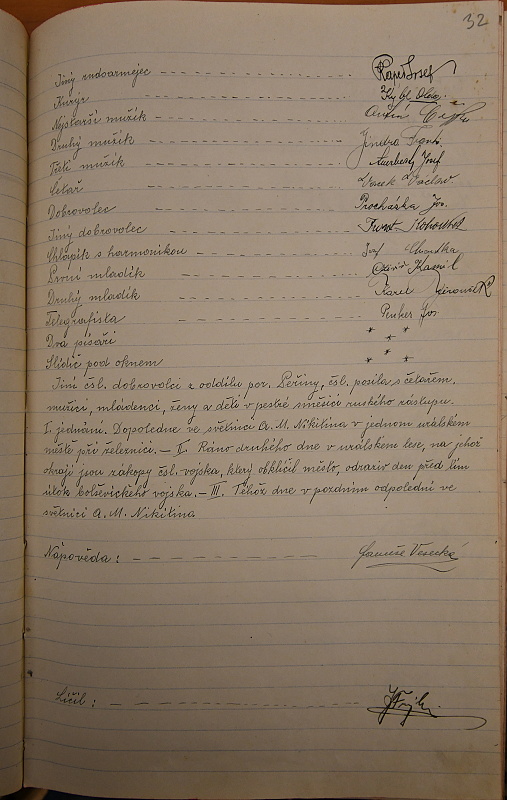 32
Jiný rudoarmějec Kapr Josef
Kurýr
Nejstarší mužík
Druhý mužík Jindra Frant.
Třetí mužík Josef
Četař Václav.
Dobrovolec Procházka Jos.
Jiný dobrovolec
Chlapík s harmonikou Jar. Chvostka
První mladík Kamil
Druhý mladík Karel
Telegrafista Penker Jos.
Dva písaři * * *
Slídič pod oknem * * *
Jiní čsl. dobrovolci z oddílu por. Peřiny, čsl. posila s četařem,
mužíci, mládenci, ženy a děti v pestré směsici ruského zástupu.
I. jednání. Dopoledne ve světnici A. M. Nikitina v jednom uralském
městě při železnici. – II. Ráno druhého dne v uralském lese, na jehož
okraji jsou zákopy čsl. vojska, který obklíčil město, odraziv den před tím
útok bolševického vojska. – III. Téhož dne v pozdním odpoledni ve
světnici A. M. Nikitina
Nápověda: Veselá
Líčil: